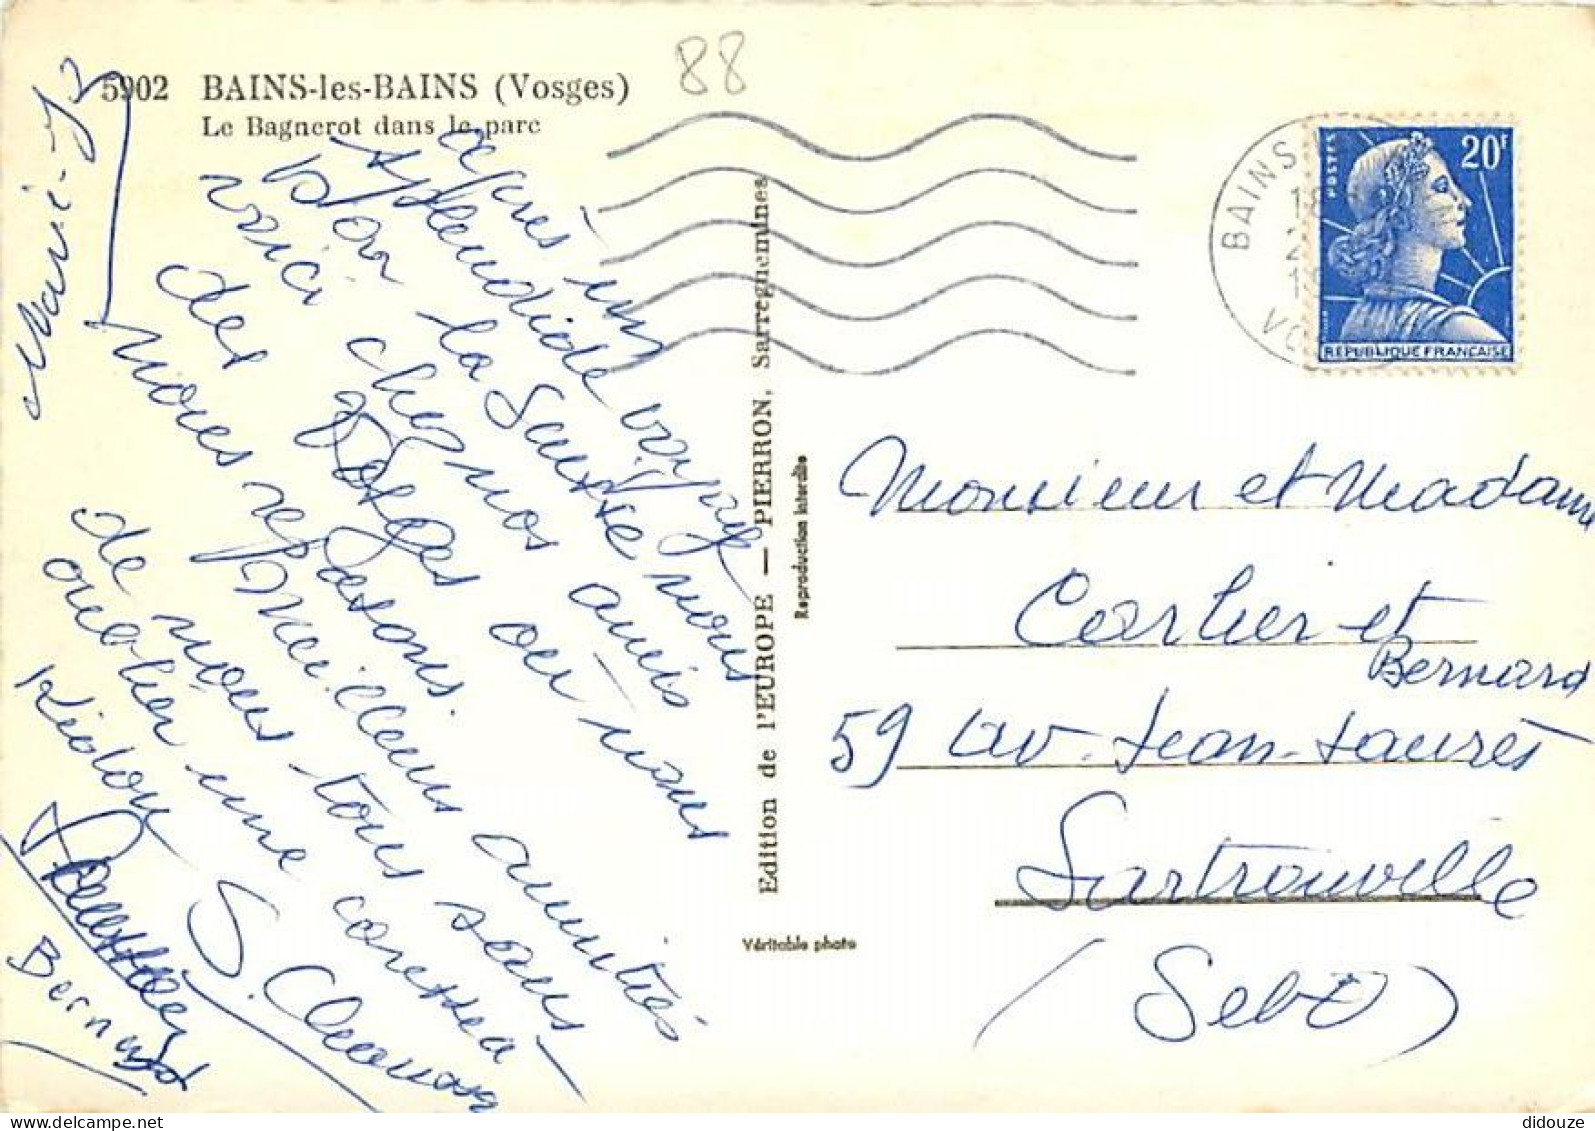 88
5902 BAINS-les-BAINS (Vosges)
Le Bagnerot dans le parc
après un
splendide voyage
par la Suisse nous
voici chez nos amis
des Vosges où nous
nous reposons.
Meilleurs amitiés
de nous tous sans
oublier une caresse à
Kidou
Bernard
Marie-J
Edition de l'EUROPE — PIERRON, Sarreguemines
Reproduction interdite
Véritable photo
BAINS
VO
POSTES
20F
REPUBLIQUE FRANCAISE
Monsieur et Madame
Carlier et
Bernard
59 av. Jean-Jaurès
Sartrouville
(S et O)
didouze